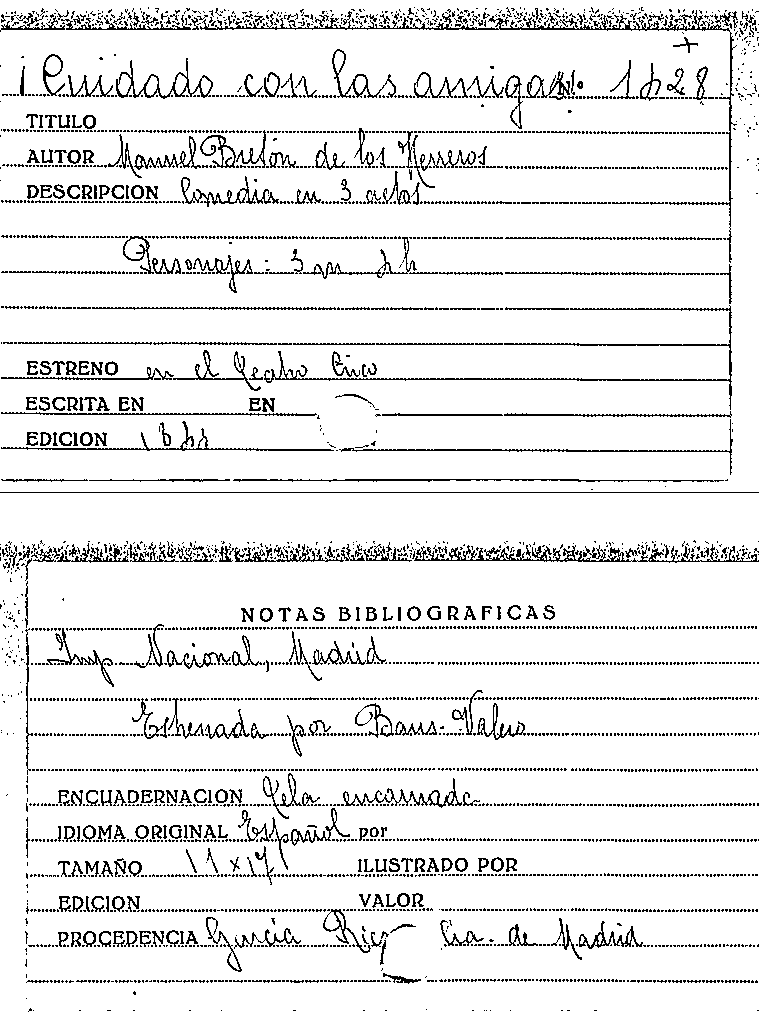 +
¡Cuidado con las amigas! No. 1528
TITULO
AUTOR Manuel Bretón de los Herreros
DESCRIPCION Comedia en 3 actos
Personajes: 3 m. 5 h
ESTRENO en el Teatro Circo
ESCRITA EN EN
EDICION 1855
NOTAS BIBLIOGRAFICAS
Imp Nacional, Madrid
Estrenada por Baus-Valero
ENCUADERNACION Tela encarnada
IDIOMA ORIGINAL Español por
TAMAÑO 11 x 17 ILUSTRADO POR
EDICION VALOR
PROCEDENCIA García Rico Cia. de Madrid